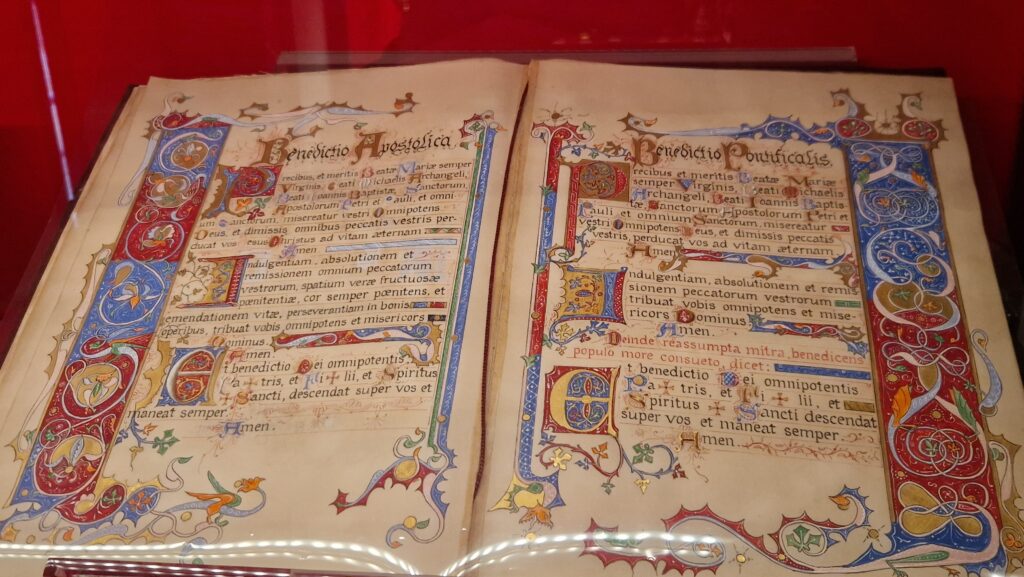 Benedictio Apostolica
Precibus, et meritis Beatæ Mariæ semper
Virginis, Beati Michaelis Archangeli,
Beati Ioannis Baptistæ, Sanctorum,
Apostolorum Petri et Pauli, et omni-
um Sanctorum, misereatur vestri Omnipotens
Deus, et dimissis omnibus peccatis vestris per-
ducat vos Iesus Christus ad vitam æternam.
Amen.
Indulgentiam, absolutionem et
remissionem omnium peccatorum
vestrorum, spatium veræ fructuosæ
pœnitentiæ, cor semper pœnitens, et
emendationem vitæ, perseverantiam in bonis
operibus, tribuat vobis omnipotens et misericors
Dominus.
Amen.
Et benedictio Dei omnipotentis,
Pa + tris, et Fi + lii, et Spiritus
+ Sancti, descendat super vos et
maneat semper.
Amen.
Benedictio Pontificalis.
Precibus, et meritis Beatæ Mariæ
semper Virginis, Beati Michaelis
Archangeli, Beati Ioannis Baptis
tæ, Sanctorum Apostolorum Petri et
Pauli et omnium Sanctorum, misereatur
vestri Omnipotens Deus, et dimissis peccatis
vestris, perducat vos ad vitam æternam.
Amen.
Indulgentiam, absolutionem et remis
sionem peccatorum vestrorum
tribuat vobis omnipotens et mise-
ricors Dominus.
Amen.
Deinde reassumpta mitra, benedicens
populo more consueto, dicet:
Et benedictio Dei omnipotentis
Pa + tris, et Fi + lii, et
Spiritus + Sancti descendat
super vos et maneat semper.
Amen.